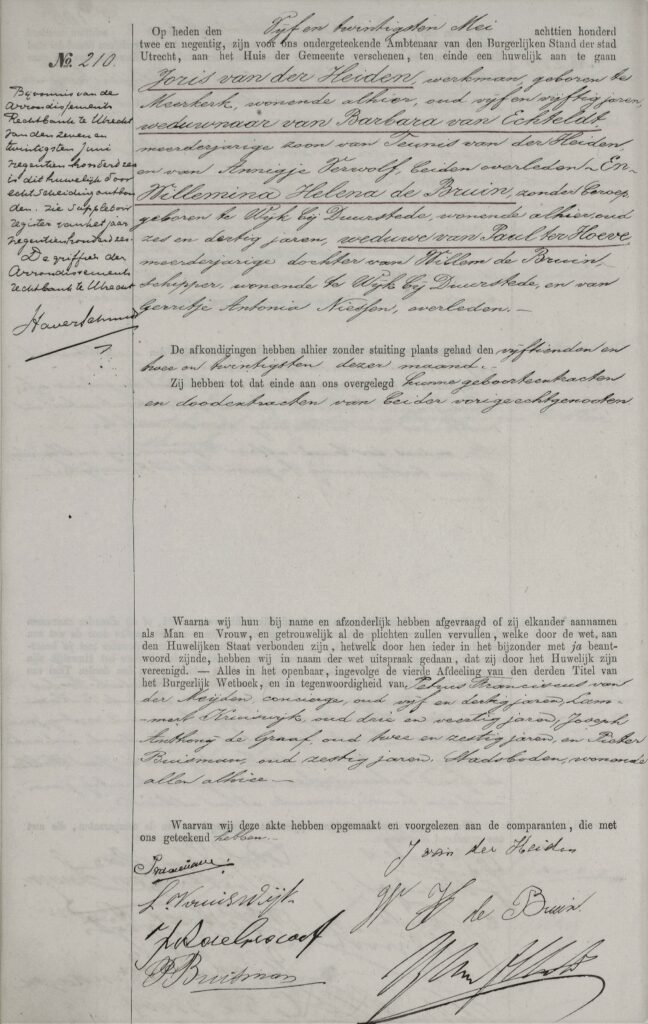 No. 210.
Bij vonnis van de
Arrondissements
Rechtbank te Utrecht
van den zeven en
twintigsten Juni
negentienhonderd zes
is dit huwelijk door
echtscheiding ontbon
den. Zie Suppletoir
register van het jaar
negentienhonderd zes.
De griffier der
Arrondissements
rechtbank te Utrecht
Op heden den Vijf en twintigsten Mei achttien honderd
twee en negentig, zijn voor ons ondergeteekende Ambtenaar van den Burgerlijken Stand der stad
Utrecht, aan het Huis der Gemeente verschenen, ten einde een huwelijk aan te gaan
Joris van der Heiden, werkman, geboren te
Meerkerk, wonende alhier, oud vijf en vijftig jaren,
weduwnaar van Barbara van Echteldt
meerderjarige zoon van Teunis van der Heiden,
en van Annigje Verwolf, beiden overleden – En –
Willemina Helena de Bruin, zonder beroep,
geboren te Wijk bij Duurstede, wonende alhier, oud
zes en dertig jaren, weduwe van Paul ter Hoeve
meerderjarige dochter van Willem de Bruin
schipper, wonende te Wijk bij Duurstede, en van
Gerritje Antonia Niessen, overleden. –
De afkondigingen hebben alhier zonder stuiting plaats gehad den vijftienden en
twee en twintigsten dezer maand.
Zij hebben tot dat einde aan ons overgelegd hunne geboorteextracten
en doodextracten van beider vorige echtgenooten
Waarna wij hun bij name en afzonderlijk hebben afgevraagd of zij elkander aannamen
als Man en Vrouw, en getrouwelijk al de plichten zullen vervullen, welke door de wet, aan
den Huwelijken Staat verbonden zijn, hetwelk door hen ieder in het bijzonder met ja beant-
woord zijnde, hebben wij in naam der wet uitspraak gedaan, dat zij door het Huwelijk zijn
vereenigd. — Alles in het openbaar, ingevolge de vierde Afdeeling van den derden Titel van
het Burgerlijk Wetboek, en in tegenwoordigheid van Petrus Franciscus van
der Meijden, concierge, oud vijf en dertig jaren, Lam-
mert Kruiswijk, oud drie en veertig jaren, Joseph
Anthonij de Graaf, oud twee en zestig jaren, en Pieter
Buisman, oud zestig jaren. Stadsboden, wonende
allen alhier –
Waarvan wij deze akte hebben opgemaakt en voorgelezen aan de comparanten, die met
ons geteekend hebben. –
J van der Heiden
L. Kruiswijk
W H de Bruin
P Buisman